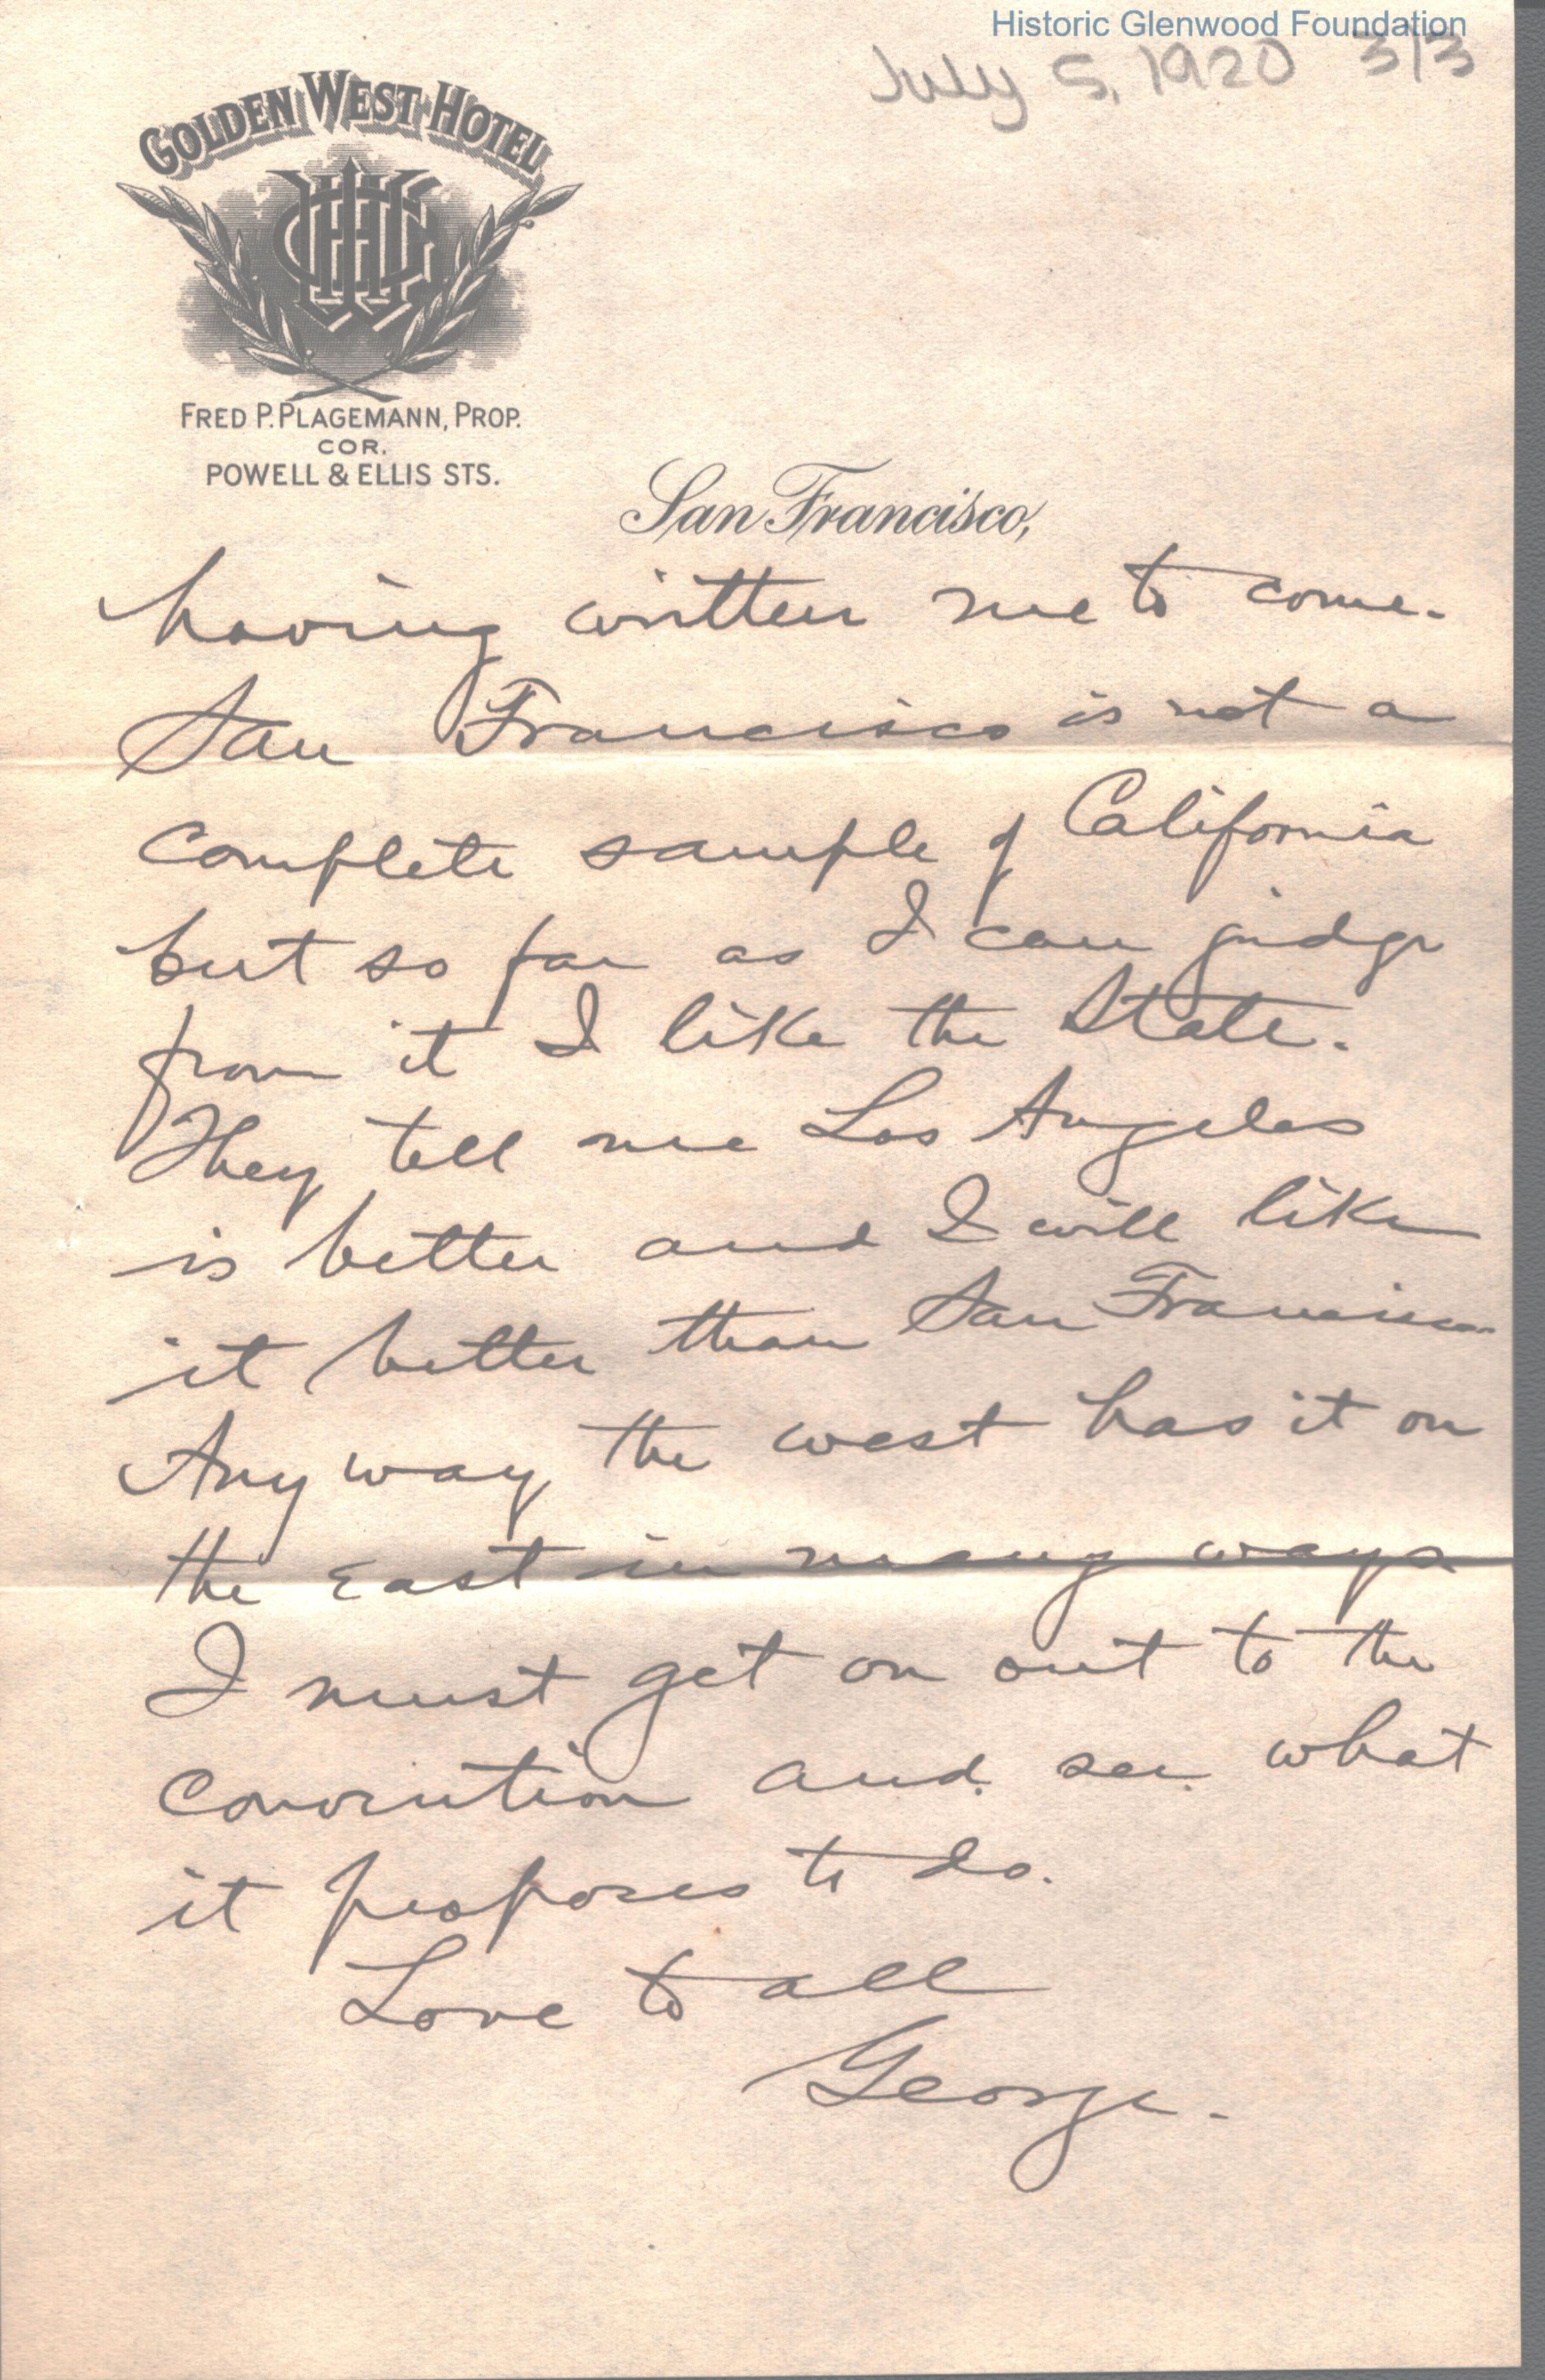 Historic Glenwood Foundation
July 5, 1920 3/3
GOLDEN WEST HOTEL
FRED P. PLAGEMANN, PROP.
COR.
POWELL & ELLIS STS.
San Francisco,
having written me to come.
San Francisco is not a
complete sample of California
but so far as I can judge
from it I like the State.
They tell me Los Angeles
is better and I will like
it better than San Francisco
Any way the west has it on
the East in many ways
I must get on out to the
convention and see what
it proposes to do.
Love to all
George.